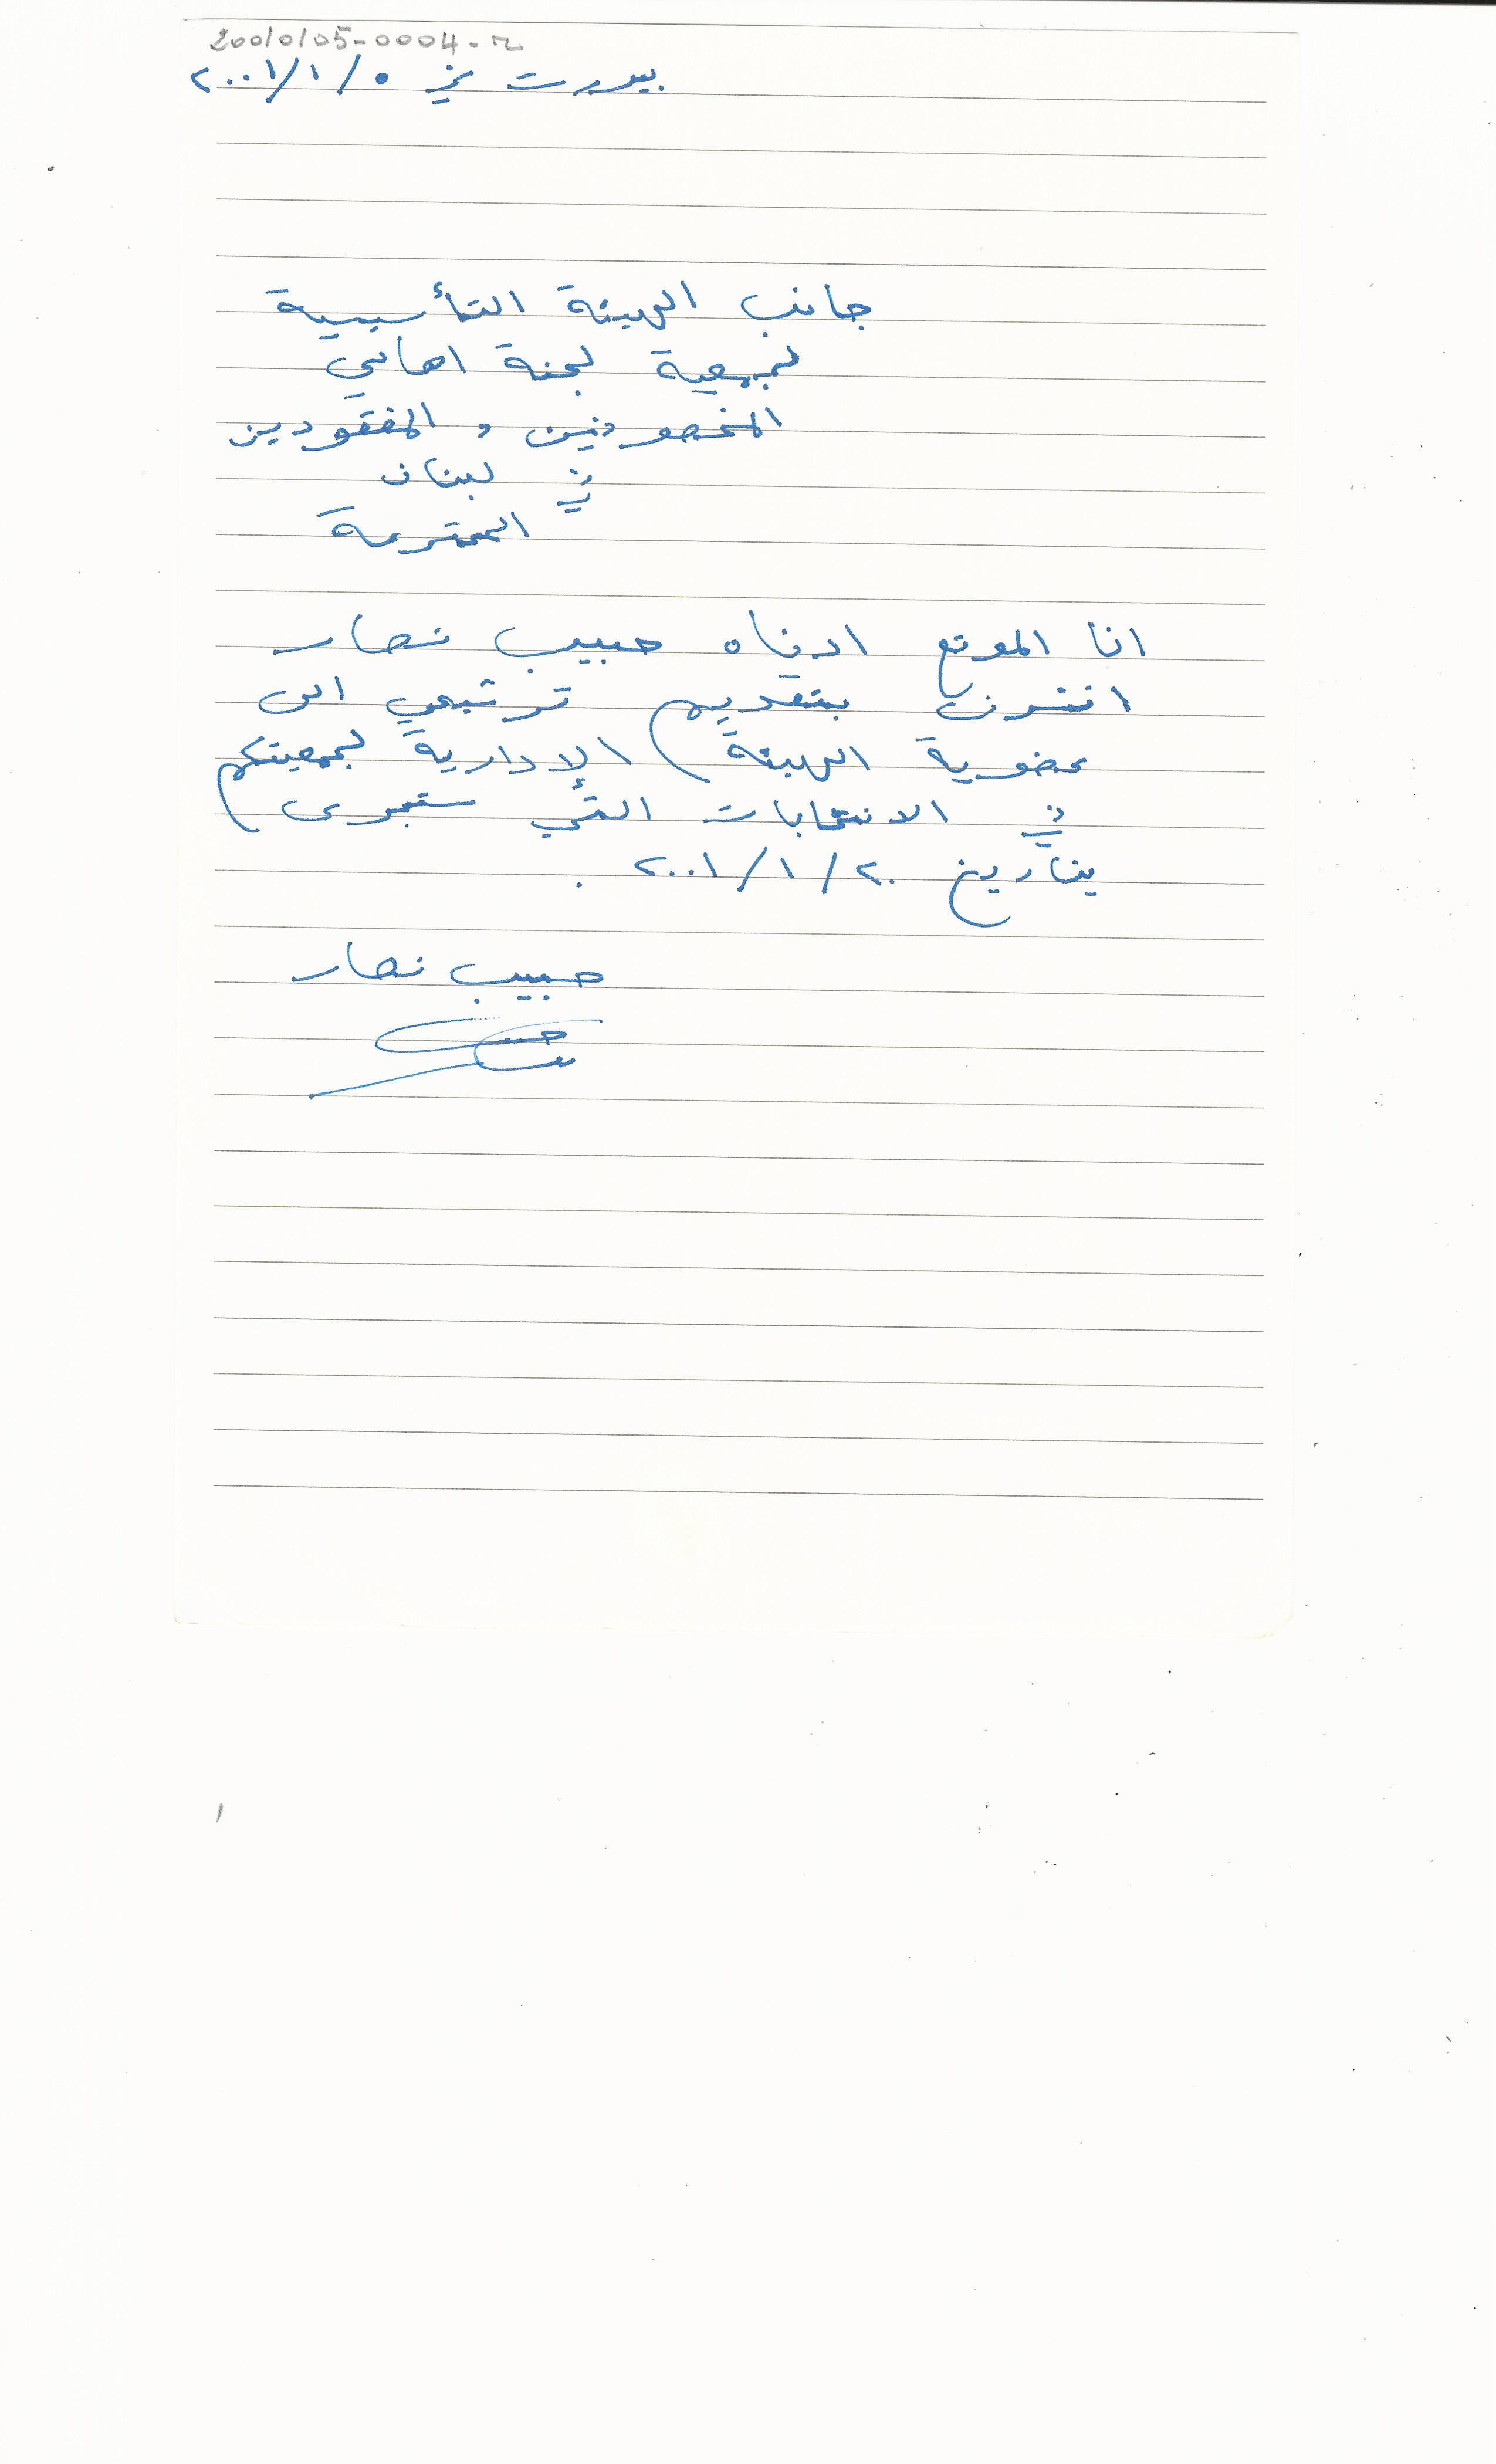 20010105-0004-م
بيروت في ٢٠٠١/١/٥
جانب الهيئة التأسيسية
لجمعية لجنة اهالي
المخطوفين و المفقودين
في لبنان
المحترمة
انا الموقع ادناه حبيب نصار
اتشرف بتقديم ترشيحي الى
عضوية الهيئة الادارية لجمعيتكم
في الانتخابات التي ستجرى
بتاريخ ٢٠٠١/١/٢٠ .
حبيب نصار